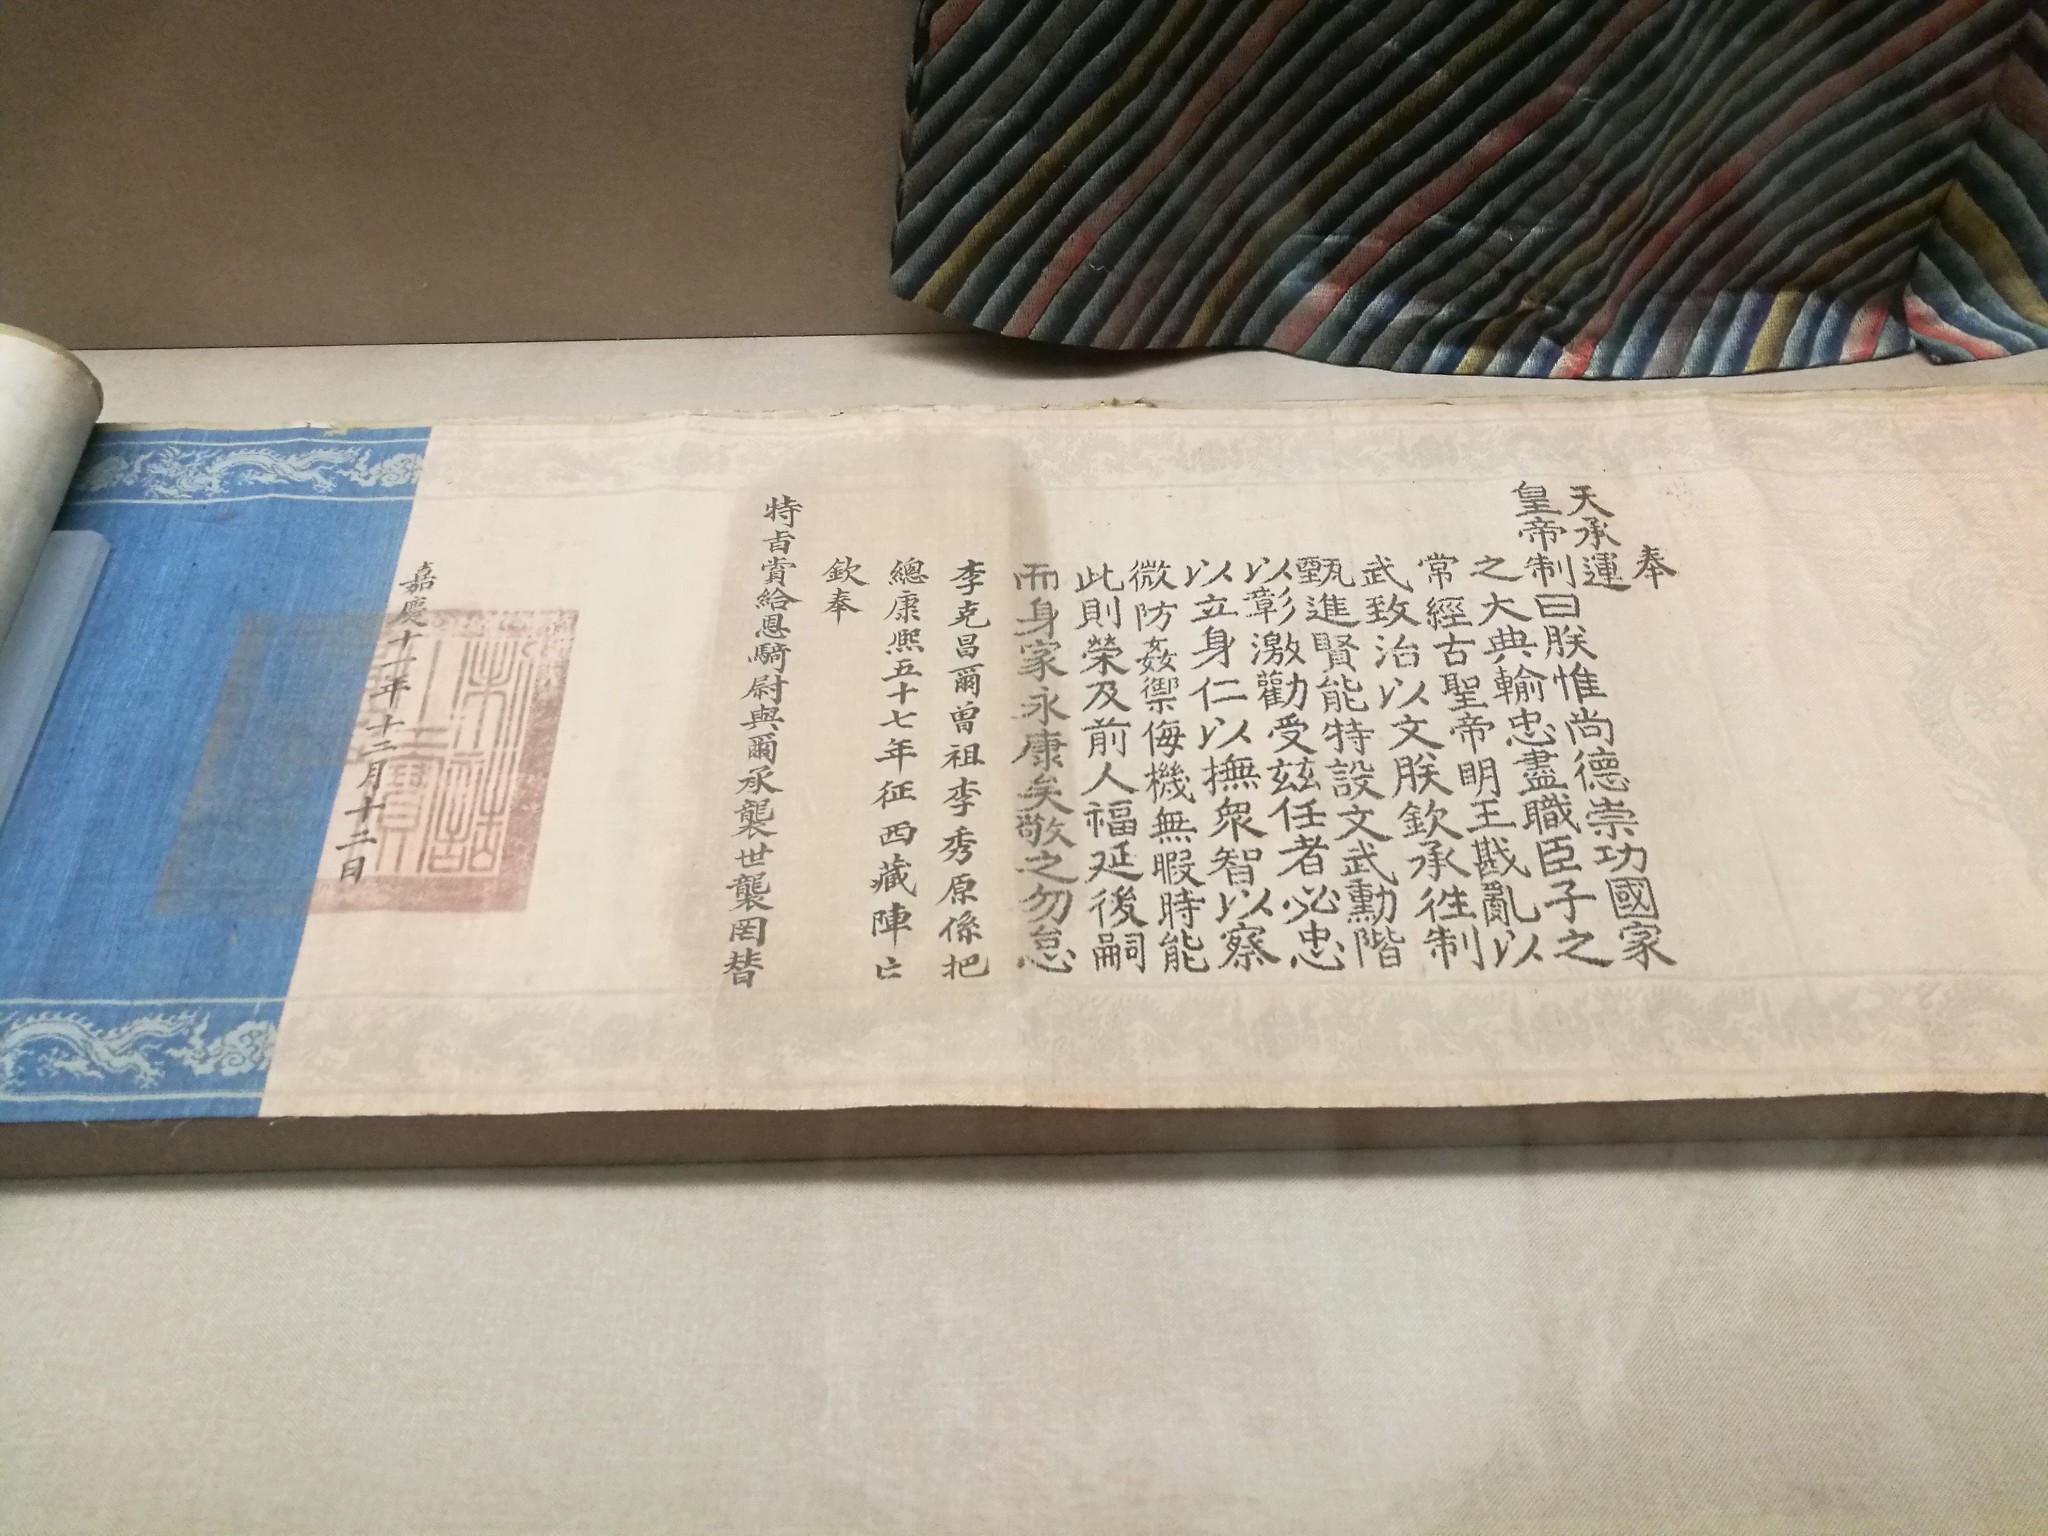 奉
天承運
皇帝制曰朕惟尚德崇功國家
之大典輸忠盡職臣子之
常經古聖帝明王戡亂以
武致治以文朕欽承往制
甄進賢能特設文武勳階
以彰激勸受茲任者必忠
以立身仁以撫眾智以察
微防姦禦侮機無暇時能
此則榮及前人福延後嗣
而身家永康矣敬之勿怠
李克昌爾曾祖李秀原係把
總康熙五十七年征西藏陣亡
欽奉
特旨賞給恩騎尉與爾承襲世襲罔替
嘉慶十一年十二月十二日